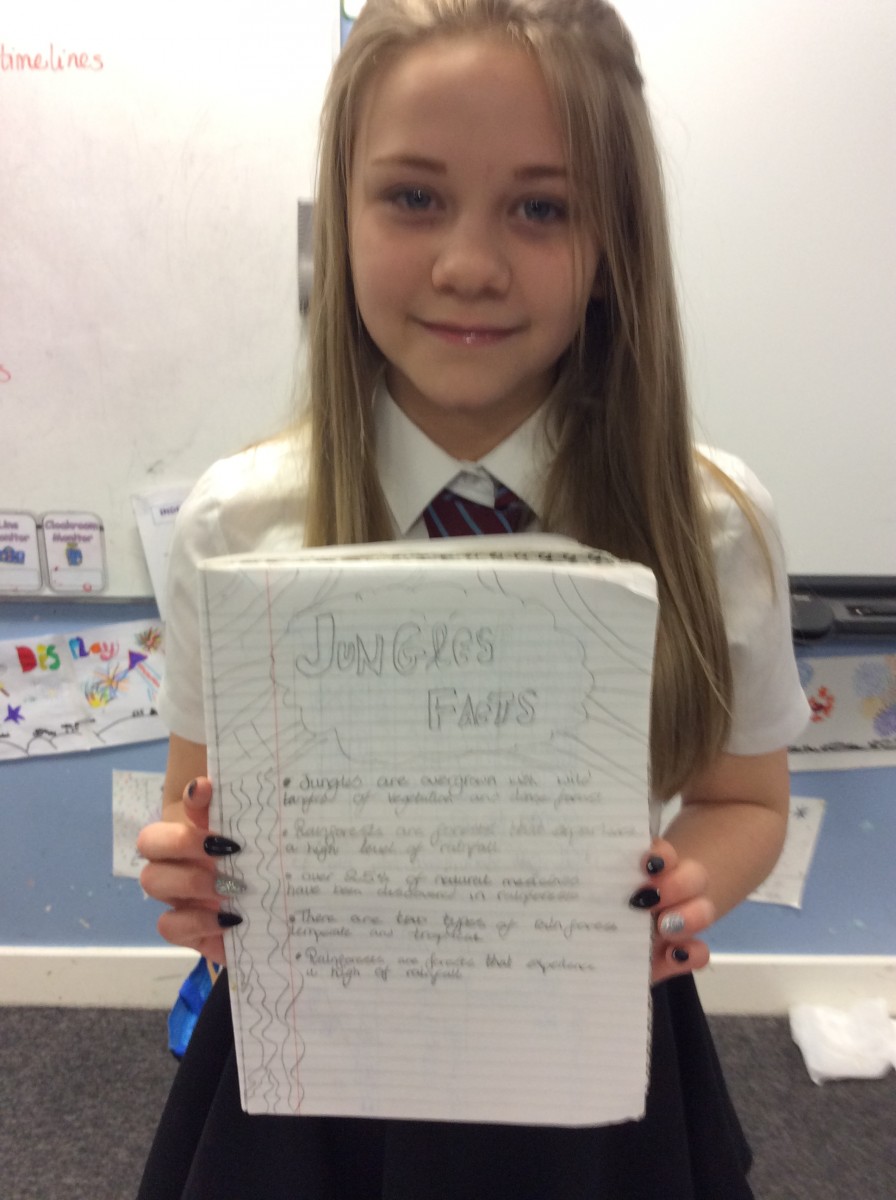 timelines
s
Line
Monitor
Classroom
Monitor
DISPLAY
JUNGLES
FACTS
• Jungles are overgrown with wild
tangles of vegetation and dense forests
• Rainforests are forests that experience
a high level of rainfall
• over 25% of natural medicines
have been discovered in rainforests
• There are two types of rainforests
temperate and tropical
• Rainforests are forests that experience
a high of rainfall